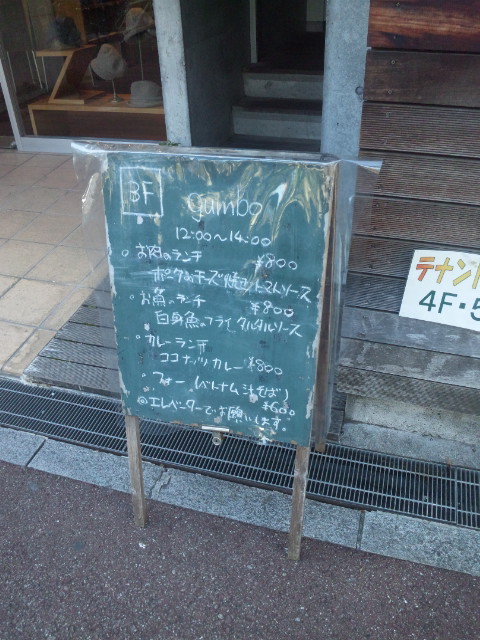 3F
gumbo
12:00~14:00
。お肉のランチ ¥800
ポークのチーズ焼きトマトソース
。お魚のランチ ¥800
白身魚のフライ タルタルソース
。カレーランチ
ココナッツカレー ¥800
。フォー(ベトナム汁そば)
¥600
◎エレベーターでお願いします。
テナント
4F・5